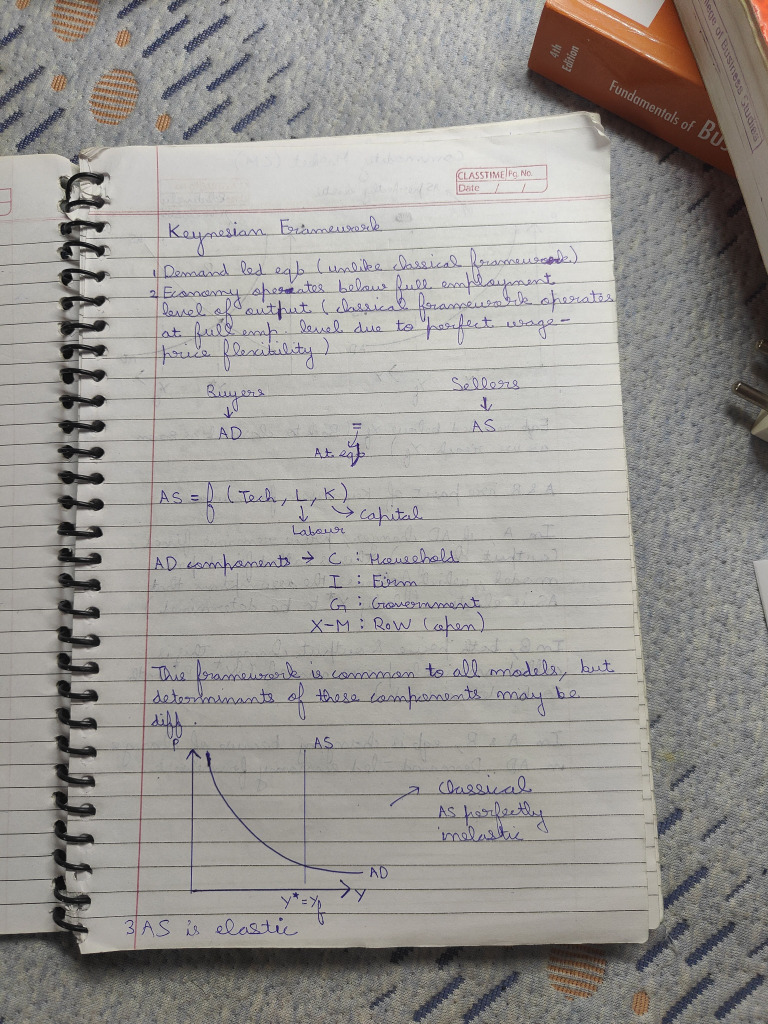 4th Edition
Fundamentals of Bus
ege of Business Studies)
CLASSTIME Pg. No.
Date / /
Keynesian Framework
1 Demand led eqb (unlike classical framework)
2 Economy operates below full employment
level of output (classical framework operates
at full emp. level due to perfect wage-
price flexibility)
Buyers Sellers
↓ ↓
AD = AS
At eqb
AS = f (Tech, L, K)
↓ → Capital
Labour
AD components → C : Household
I : Firm
G : Government
X-M : RoW (open)
This framework is common to all models, but
determinants of these components may be
diff.
P AS
→ Classical
AS perfectly
inelastic
AD
Y* = Yf Y
3 AS is elastic